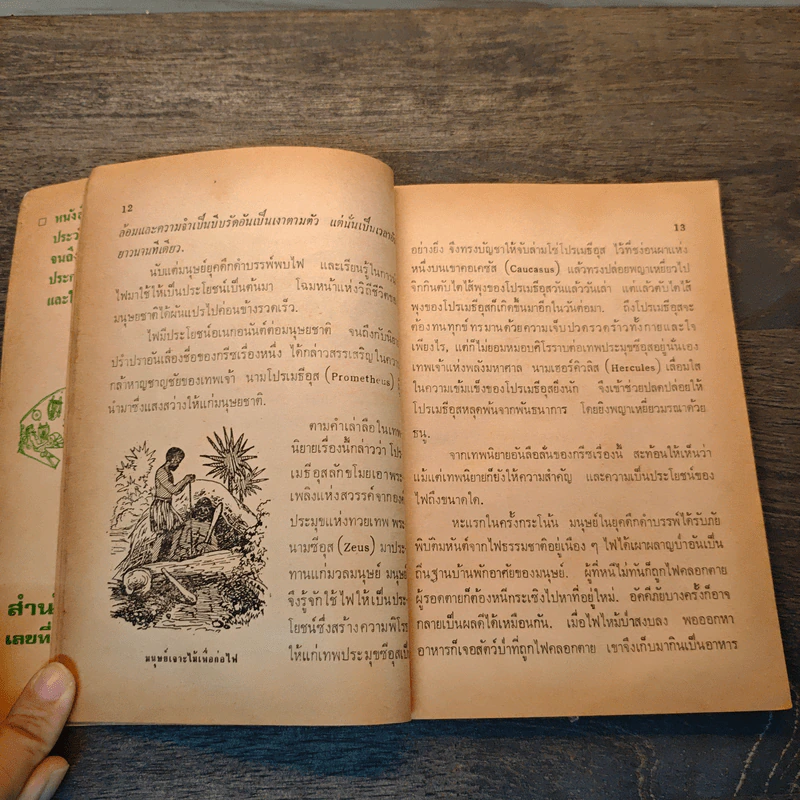 □ หนังสื
ประว
จนถึง
ประก
และใ
สำน
เลขที่
12
ล้อมและความจำเป็นบีบรัดอันเป็นเงาตามตัว แต่นั่นเป็นเวลา
ยาวนานทีเดียว.
นับแต่มนุษย์ยุคดึกดำบรรพ์พบไฟ และเรียนรู้ในการ
ไฟมาใช้ให้เป็นประโยชน์เป็นต้นมา โฉมหน้าแห่งวิถีชีวิต
มนุษยชาติได้ผันแปรไปค่อนข้างรวดเร็ว.
ไฟมีประโยชน์อเนกอนันต์ต่อมนุษยชาติ จนถึงกับนิยาย
ปรำปราอันเลื่องชื่อของกรีซเรื่องหนึ่ง ได้กล่าวสรรเสริญในความ
กล้าหาญชาญชัยของเทพเจ้า นามโปรเมธีอุส (Prometheus)
นำมาซึ่งแสงสว่างให้แก่มนุษยชาติ.
ตามคำเล่าลือในเทพ
นิยายเรื่องนี้กล่าวว่า โปร
เมธีอุสลักขโมยเอาพระ
เพลิงแห่งสวรรค์จากองค์
ประมุขแห่งทวยเทพ พระ
นามซีอุส (Zeus) มาประ
ทานแก่มวลมนุษย์ มนุษย์
จึงรู้จักใช้ไฟให้เป็นประ
โยชน์ซึ่งสร้างความพิโร
ให้แก่เทพประมุขซีอุสเป็น
มนุษย์เจาะไม้เพื่อก่อไฟ
13
อย่างยิ่ง จึงทรงบัญชาให้จับล่ามโซ่โปรเมธีอุส ไว้ที่ชง่อนผาแห่ง
หนึ่งบนเขาคอเคซัส (Caucasus) แล้วทรงปล่อยพญาเหยี่ยวไป
จิกกินตับไตไส้พุงของโปรเมธีอุสวันแล้ววันเล่า แต่แล้วตับไตไส้
พุงของโปรเมธีอุสก็เกิดขึ้นมาอีกในวันต่อมา. ถึงโปรเมธีอุสจะ
ต้องทนทุกข์ทรมานด้วยความเจ็บปวดรวดร้าวทั้งกายและใจ
เพียงไร, แต่ก็ไม่ยอมหมอบศิโรราบต่อเทพประมุขซีอุสอยู่นั่นเอง
เทพเจ้าแห่งพลังมหาศาล นามเฮอร์คิวลิส (Hercules) เลื่อมใส
ในความเข้มแข็งของโปรเมธีอุสยิ่งนัก จึงเข้าช่วยปลดปล่อยให้
โปรเมธีอุสหลุดพ้นจากพันธนาการ โดยยิงพญาเหยี่ยวมรณาด้วย
ธนู.
จากเทพนิยายอันลือลั่นของกรีซเรื่องนี้ สะท้อนให้เห็นว่า
แม้แต่เทพนิยายก็ยังให้ความสำคัญ และความเป็นประโยชน์ของ
ไฟถึงขนาดใด.
หะแรกในครั้งกระโน้น มนุษย์ในยุคดึกดำบรรพ์ได้รับภัย
พิบัติมหันต์จากไฟธรรมชาติอยู่เนือง ๆ ไฟได้เผาผลาญป่าอันเป็น
ถิ่นฐานบ้านพักอาศัยของมนุษย์. ผู้ที่หนีไม่ทันก็ถูกไฟคลอกตาย
ผู้รอดตายก็ต้องหนีกระเซิงไปหาที่อยู่ใหม่. อัคคีภัยบางครั้งก็อาจ
กลายเป็นผลดีได้เหมือนกัน. เมื่อไฟไหม้ป่าสงบลง พอออกหา
อาหารก็เจอสัตว์ป่าที่ถูกไฟคลอกตาย เขาจึงเก็บมากินเป็นอาหาร